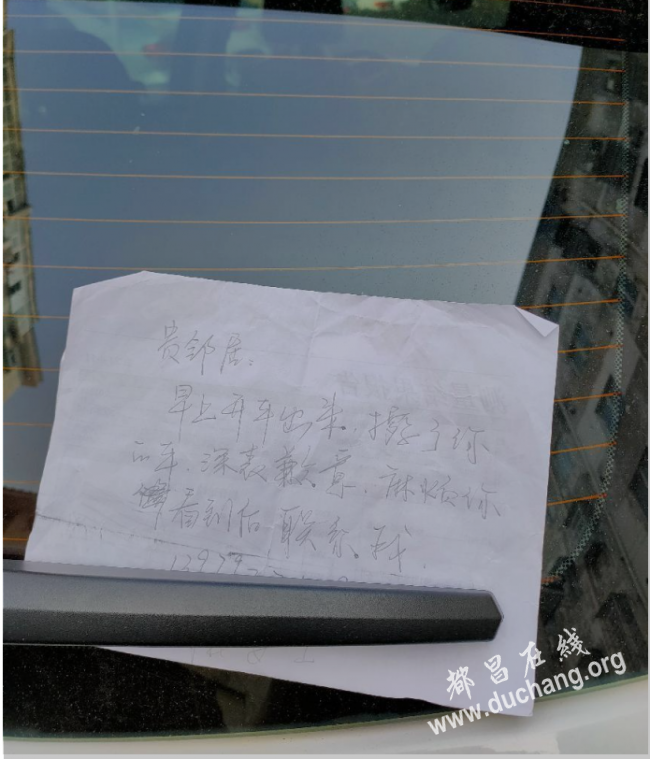 贵邻居：
早上开车出来，擦了你
的车，深表歉意，麻烦你
看到后联系我，
都昌在线
www.duchang.org